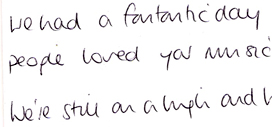 We had a fantantic day
people loved your music
We're still on a high and